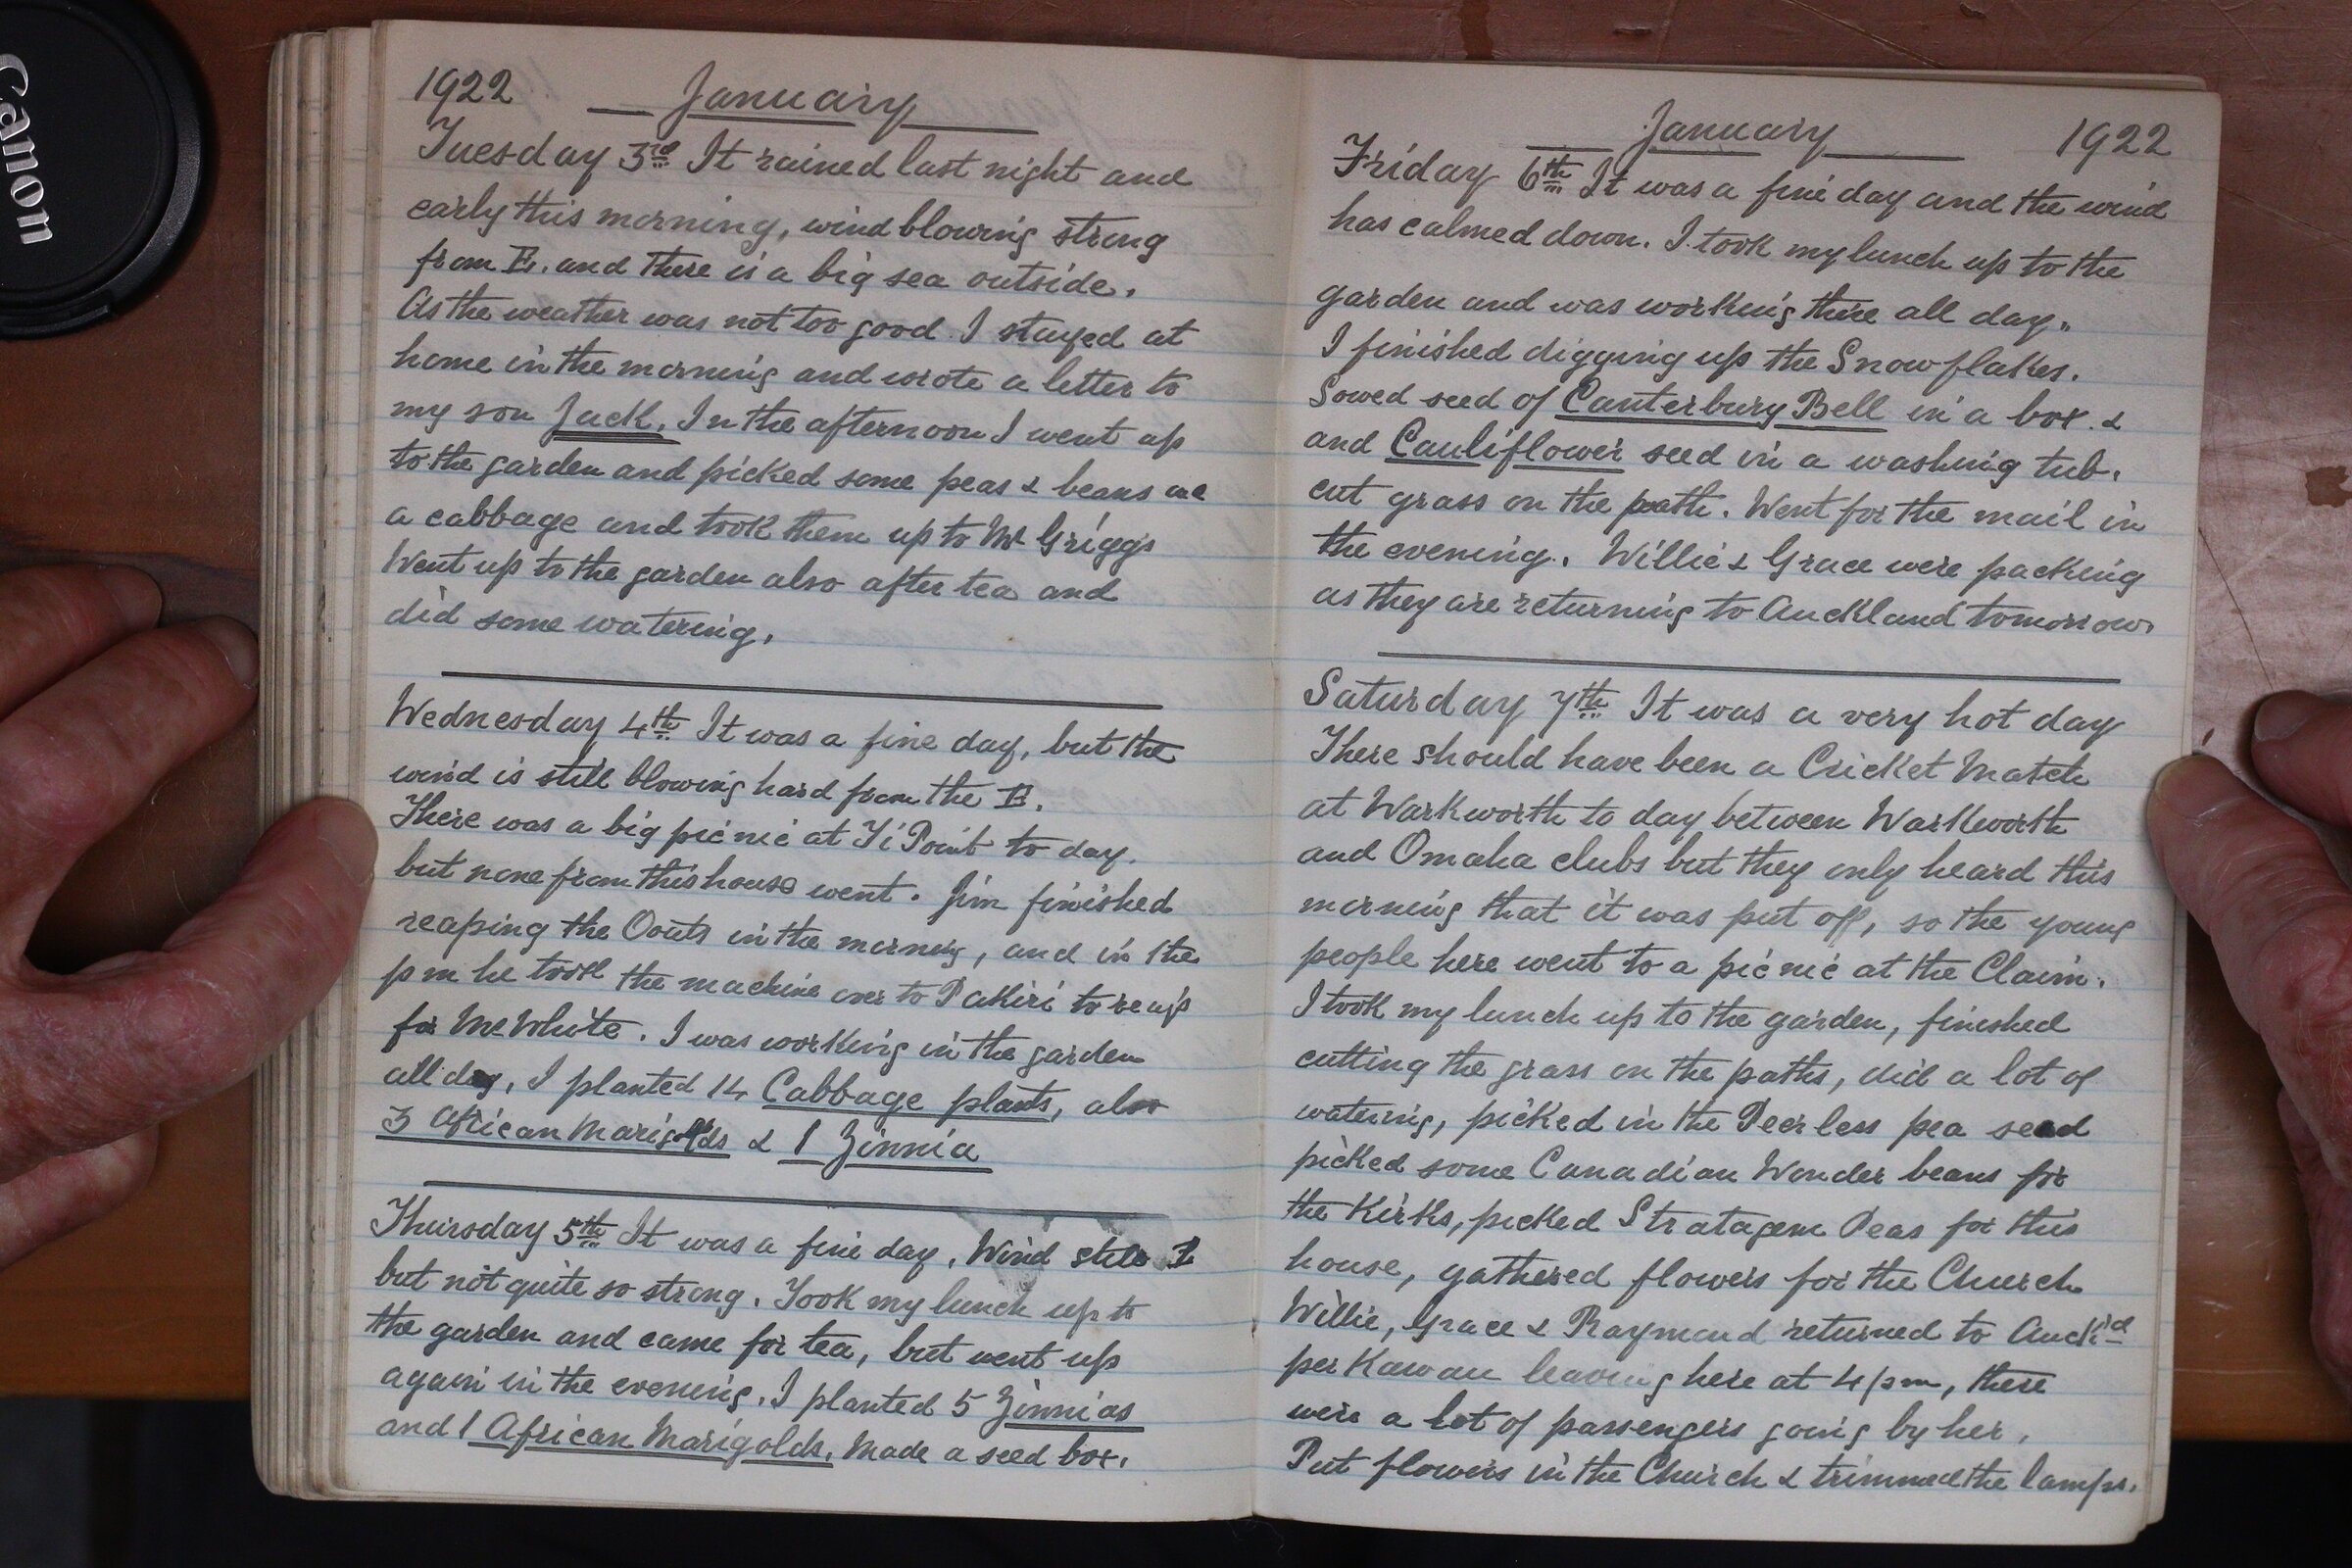 Canon
1922 January
Tuesday 3rd It rained last night and
early this morning, wind blowing strong
from E. and there is a big sea outside.
As the weather was not too good I stayed at
home in the morning and wrote a letter to
my son Jack. In the afternoon I went up
to the garden and picked some peas & beans
a cabbage and took them up to Mr Griggs
Went up to the garden also after tea and
did some watering.
Wednesday 4th It was a fine day, but the
wind is still blowing hard from the E.
There was a big picnic at Ti Point to day.
but none from this house went. Jim finished
reaping the Oats in the morning, and in the
pm he took the machine over to Pakiri to reap
for Mr White. I was working in the garden
all day, I planted 14 Cabbage plants, also
3 African Marigolds & 1 Zinnia
Thursday 5th It was a fine day, Wind still E
but not quite so strong. Took my lunch up to
the garden and came for tea, but went up
again in the evening. I planted 5 Zinnias
and 1 African Marigolds. Made a seed box.
January 1922
Friday 6th It was a fine day and the wind
has calmed down. I took my lunch up to the
garden and was working there all day.
I finished digging up the Snowflakes.
Sowed seed of Canterbury Bell in a box &
and Cauliflower seed in a washing tub.
cut grass on the path. Went for the mail in
the evening. Willie & Grace were packing
as they are returning to Auckland tomorrow.
Saturday 7th It was a very hot day
There should have been a Cricket Match
at Warkworth to day between Warkworth
and Omaha clubs but they only heard this
morning that it was put off, so the young
people here went to a picnic at the Claim.
I took my lunch up to the garden, finished
cutting the grass on the paths, did a lot of
watering, picked in the Peerless pea seed
picked some Canadian Wonder beans for
the Kirks, picked Stratagem Peas for this
house, gathered flowers for the Church
Willie, Grace & Raymond returned to Auckld
per Kawau leaving here at 4 pm, there
were a lot of passengers going by her.
Put flowers in the Church & trimmed the lamps.